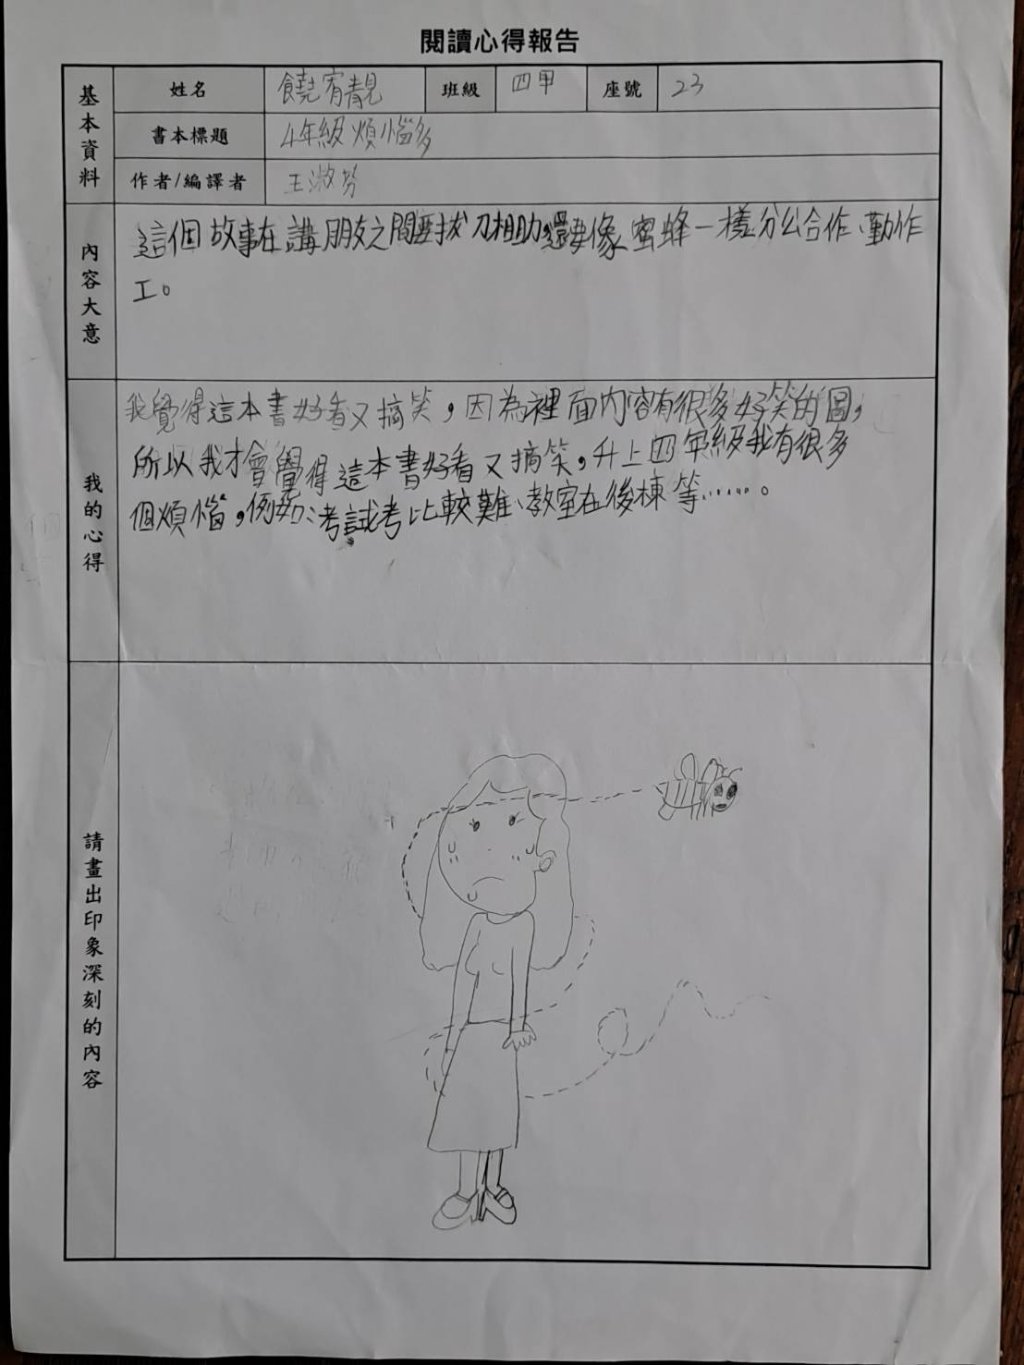 閱讀心得報告
基本資料
姓名 饒宥靚 班級 四甲 座號 23
書本標題 4年級煩惱多
作者/編譯者 王淑芬
內容大意
這個故事在講朋友之間要拔刀相助,還要像蜜蜂一樣分公合作、勤作
工。
我的心得
我覺得這本書好看又搞笑,因為裡面內容有很多好笑的圖,
所以我才會覺得這本書好看又搞笑,升上四年級我有很多
個煩惱,例如:考試考比較難、教室在後棟等……。
請畫出印象深刻的內容